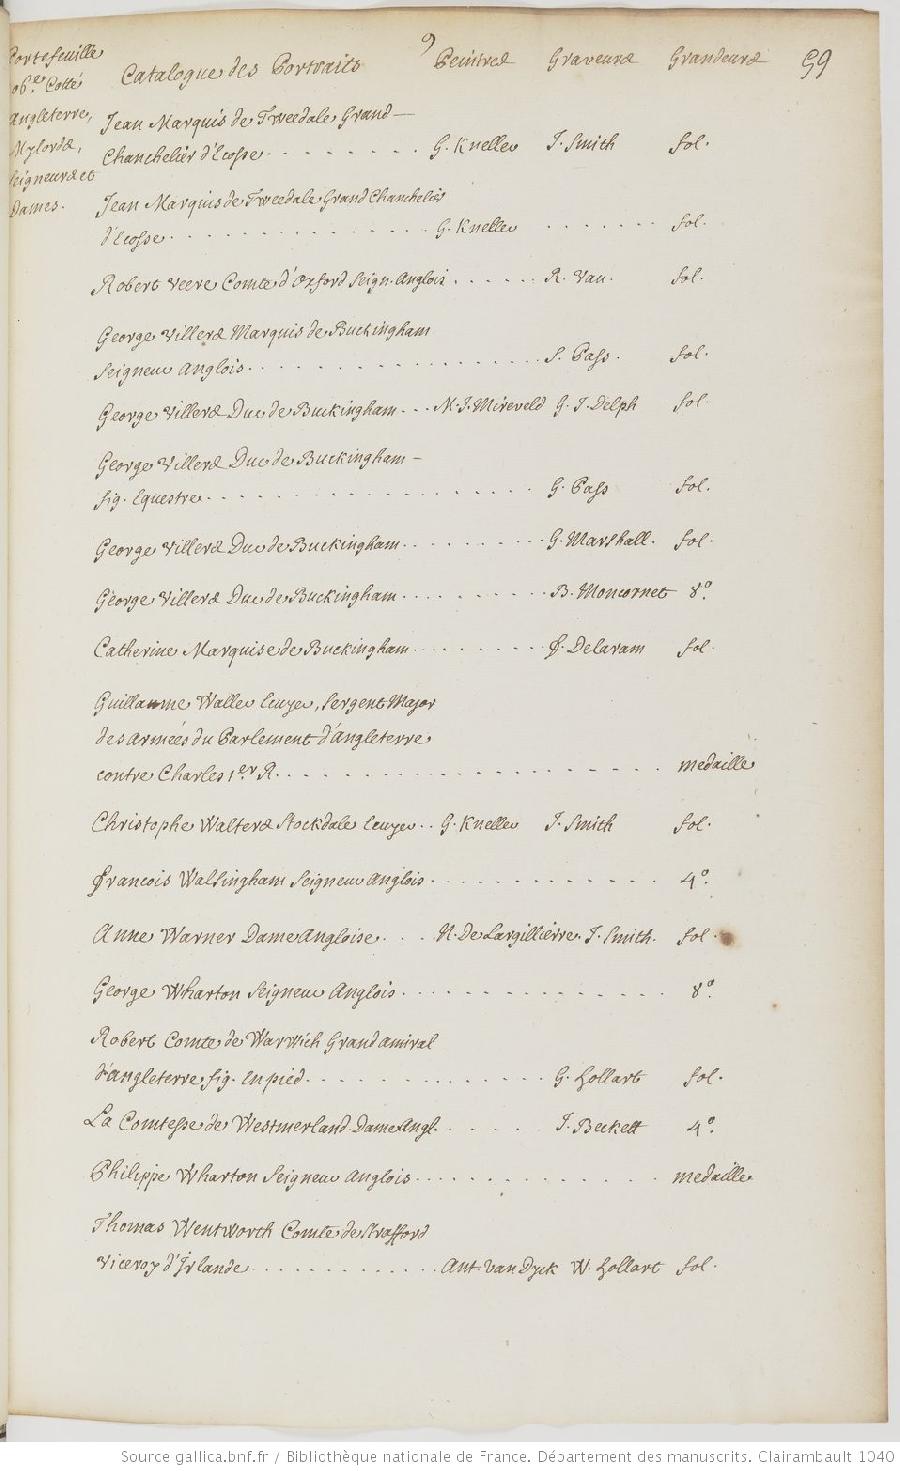 9
Portefeuille Catalogue des Portraits Peintres Graveurs Grandeurs 59
Cotté
Angleterre,
Mylords,
Seigneurs et
Dames.
Jean Marquis de Tweedale Grand
Chanchelier d'Ecosse . . . . . . . . G. Kneller J. Smith fol.
Jean Marquis de Tweedale Grand Chanchelier
d'Ecosse . . . . . . . . . . . . . . . G. Kneller . . . . . . . fol.
Robert Veere Comte d'Oxford Seign. Anglois . . . . . . R. Van. fol.
George Villers Marquis de Buckingham
Seigneur Anglois . . . . . . . . . . . . . . . . S. Pass. fol.
George Villers Duc de Buckingham . . . M. J. Mireveld G. J. Delph fol.
George Villers Duc de Buckingham -
fig. Equestre . . . . . . . . . . . . . . . . . . G. Pass fol.
George Villers Duc de Buckingham . . . . . . . . . . G. Marshall. fol.
George Villers Duc de Buckingham . . . . . . . . . . B. Moncornet 8°.
Catherine Marquise de Buckingham . . . . . . . . . F. Delaram fol.
Guillaume Waller Ecuyer, Sergent Major
des Armées du Parlement d'Angleterre
contre Charles 1er. R. . . . . . . . . . . . . . . . . . . . medaille
Christophe Walters Stockdale Ecuyer . . G. Kneller J. Smith fol.
Francois Walsingham Seigneur Anglois . . . . . . . . . . . . 4°.
Anne Warner Dame Angloise . . . N. De Largillierre. J. Smith. fol.
George Wharton Seigneur Anglois . . . . . . . . . . . . . 8°.
Robert Comte de Warwich Grand amiral
d'Angleterre fig. En pied . . . . . . . . . . . . . G. Hollart fol.
La Comtesse de Westmerland Dame Angl. . . . . . J. Beckett 4°.
Philippe Wharton Seigneur Anglois . . . . . . . . . . . . . medaille
Thomas Wentworth Comte de Strafford
Viceroy d'Irlande . . . . . . . . . . . . Ant. Van Dyck W. Hollart fol.
Source gallica.bnf.fr / Bibliothèque nationale de France. Département des manuscrits. Clairambault 1040